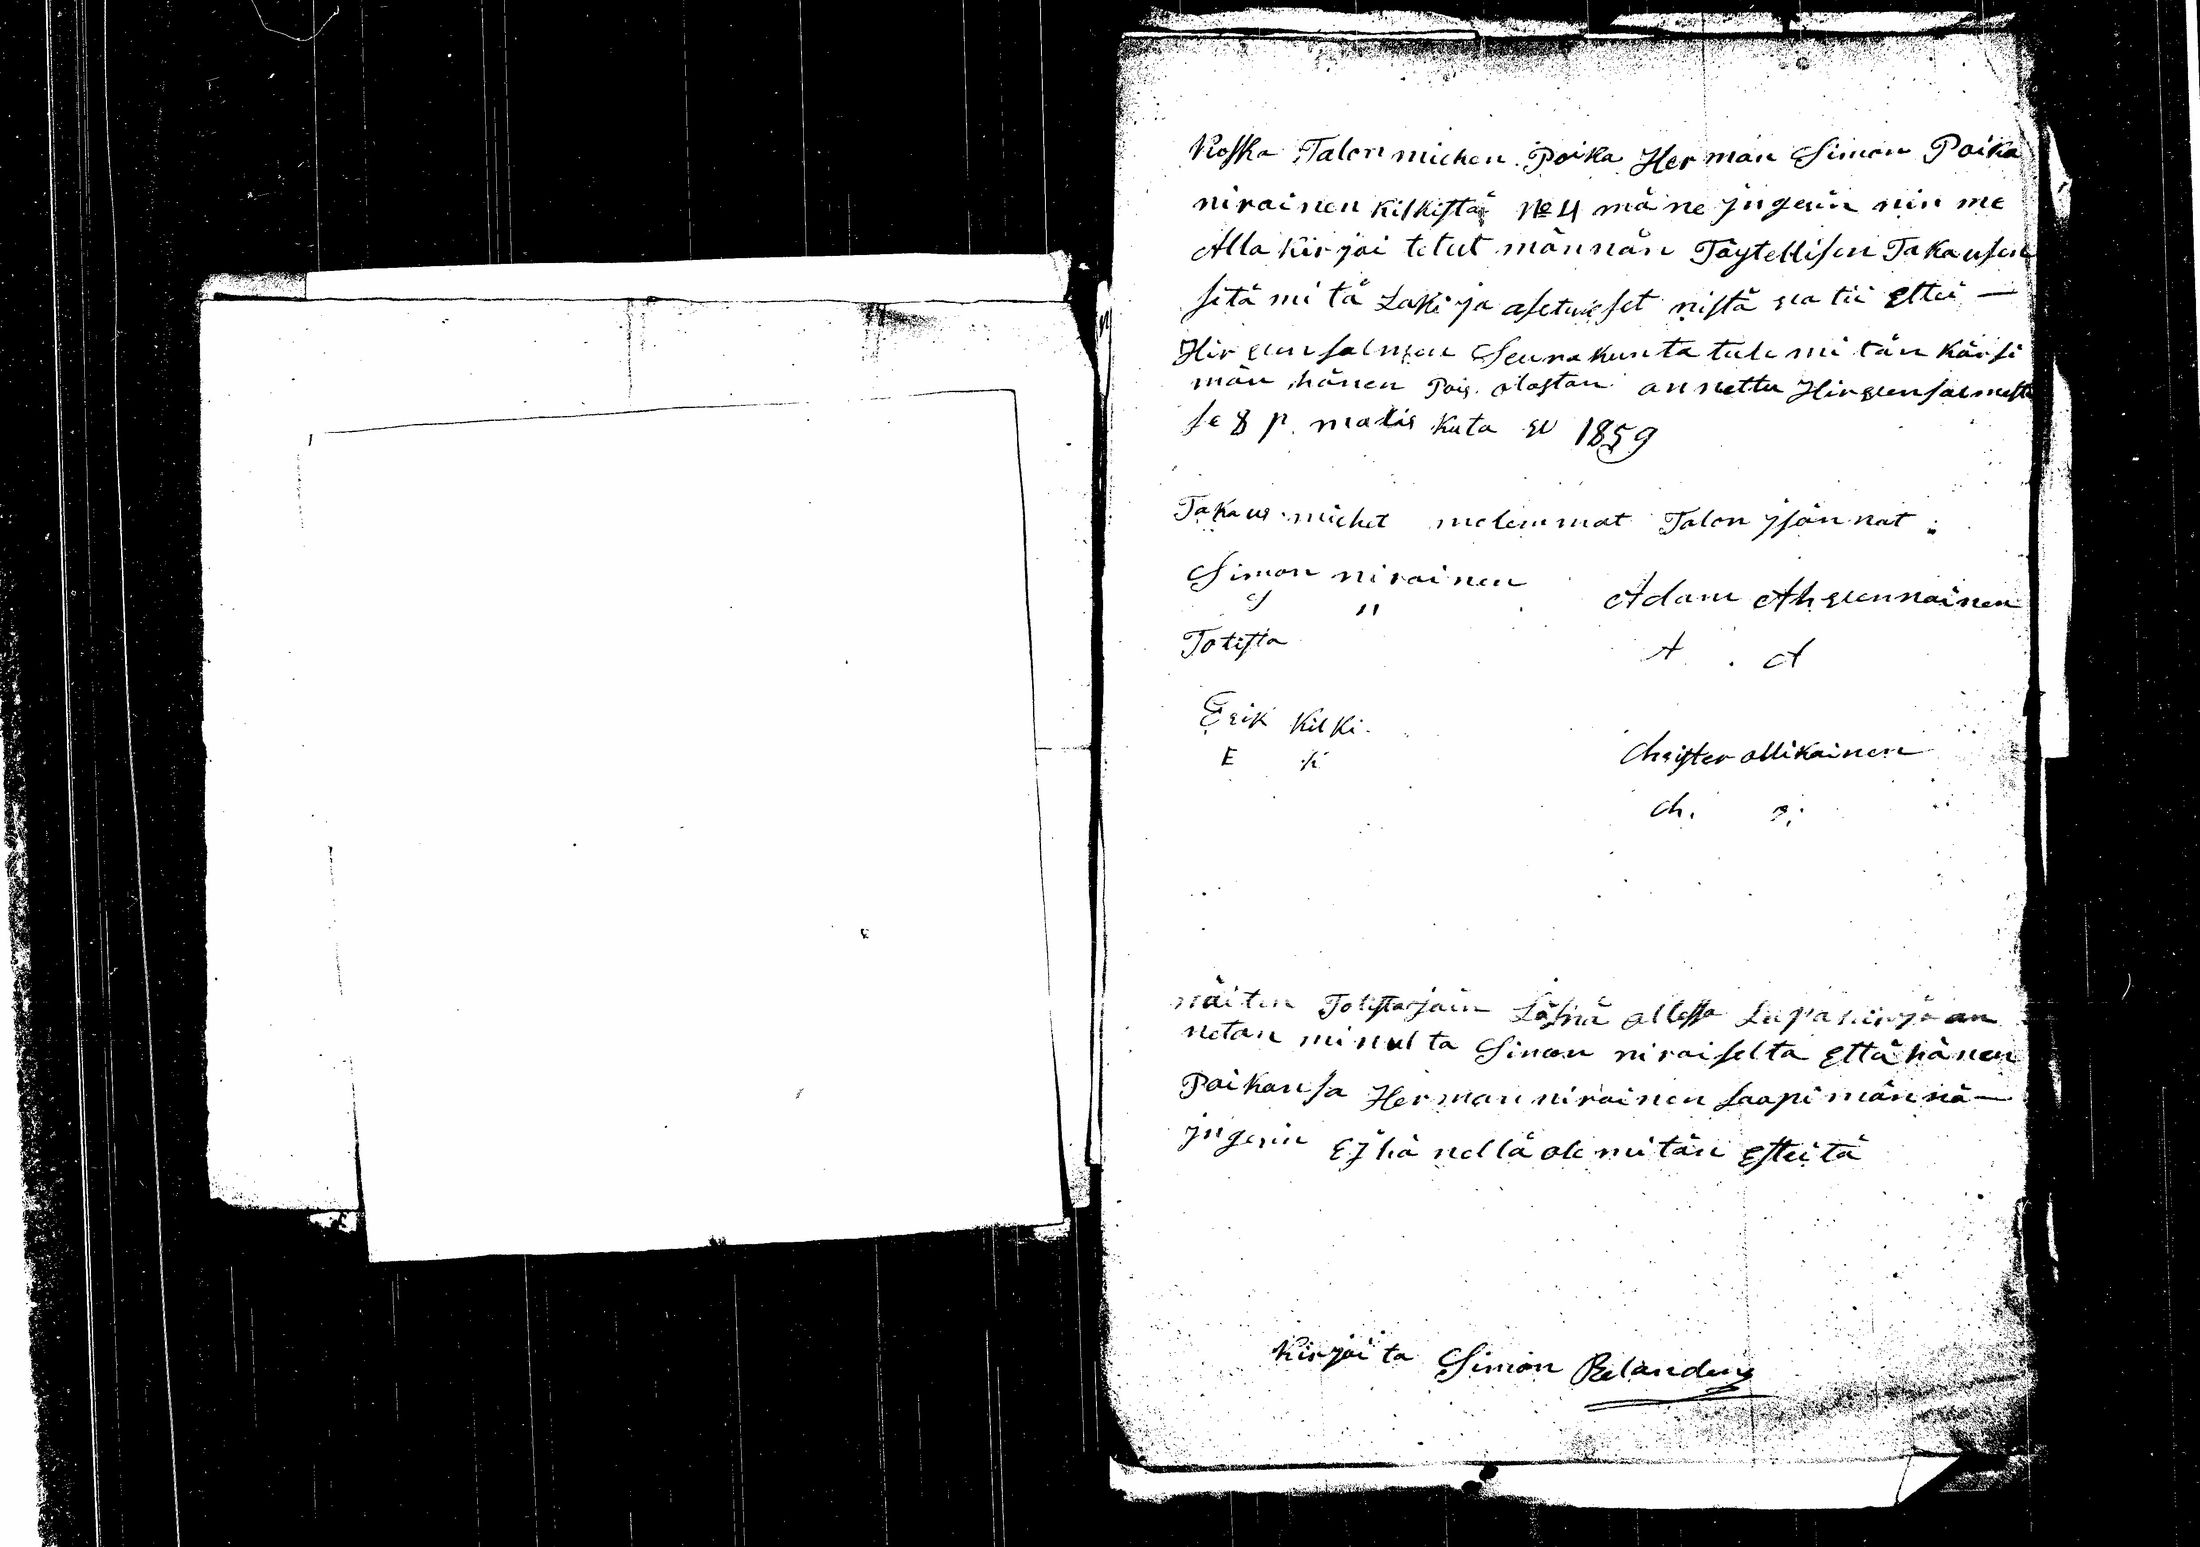 Koska Talon miehen Poika Herman Simon Poika
nirainen Kilkistä № 4 mäne jngerin nin me
Alla kirjoi tetut männän Täytellisen Takausen
sitä mi tä Laki ja asetuxset nistä wa tii Ettei —
Hirwensalmen Seurakunta tule mi tän kärsi
män hänen Pois olostan annettu Hirwensalmesta
se 8 p. malis kuta w 1859
Takaus miehet molemmat Talon jsännät:
Simon nirainen
S "
Adam Ahwennainen
A. A
Totista
Erik Kilki.
E K
Christer ollikainen
Ch. O.
näiten Totistajain Läsnä ollessa Lupa kirja an
netan minulta Simon niraiselta Että hänen
Poikansa Herman nirainen saapi männä —
jngerin Ej hä nellä ole mi tän Esteitä
Kirjoi ta Simon Relander